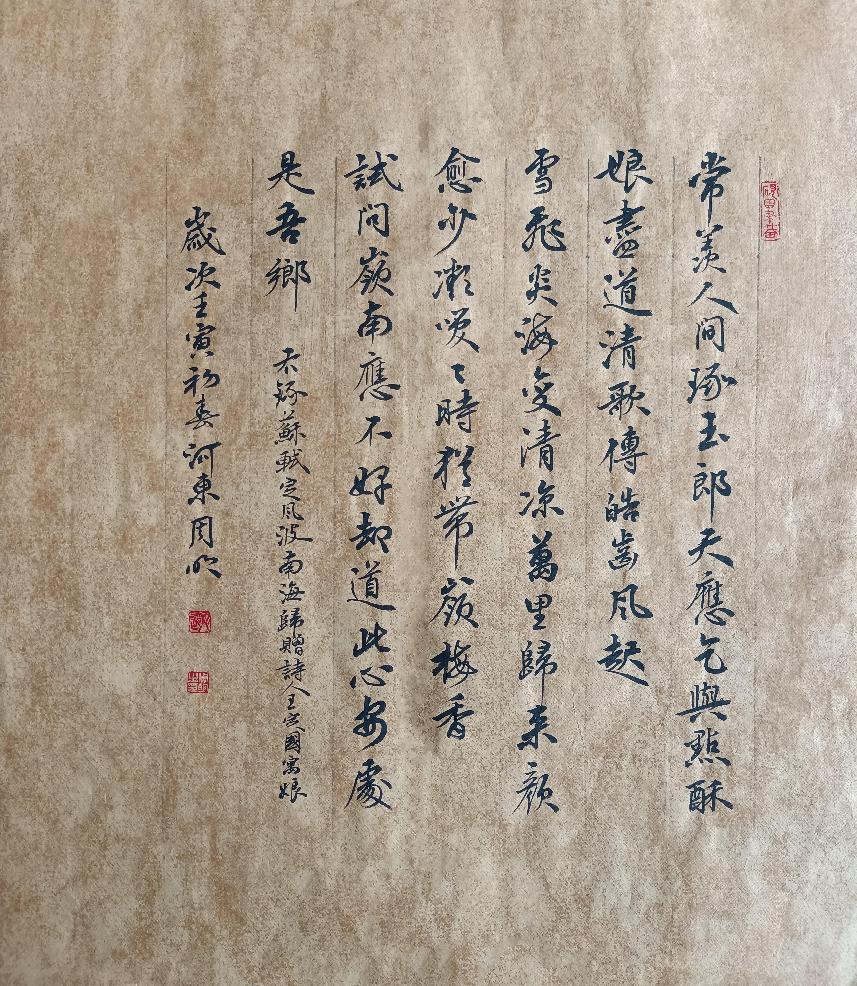 常羨人間琢玉郎天應乞與點酥
娘盡道清歌傳皓齒風起
雪飛炎海變清凉萬里歸来顏
愈少微笑々時猶帶嶺梅香
試問嶺南應不好却道此心安處
是吾鄉
右錄蘇軾定風波南海歸贈詩人王定國寓娘
歲次壬寅初春河東周